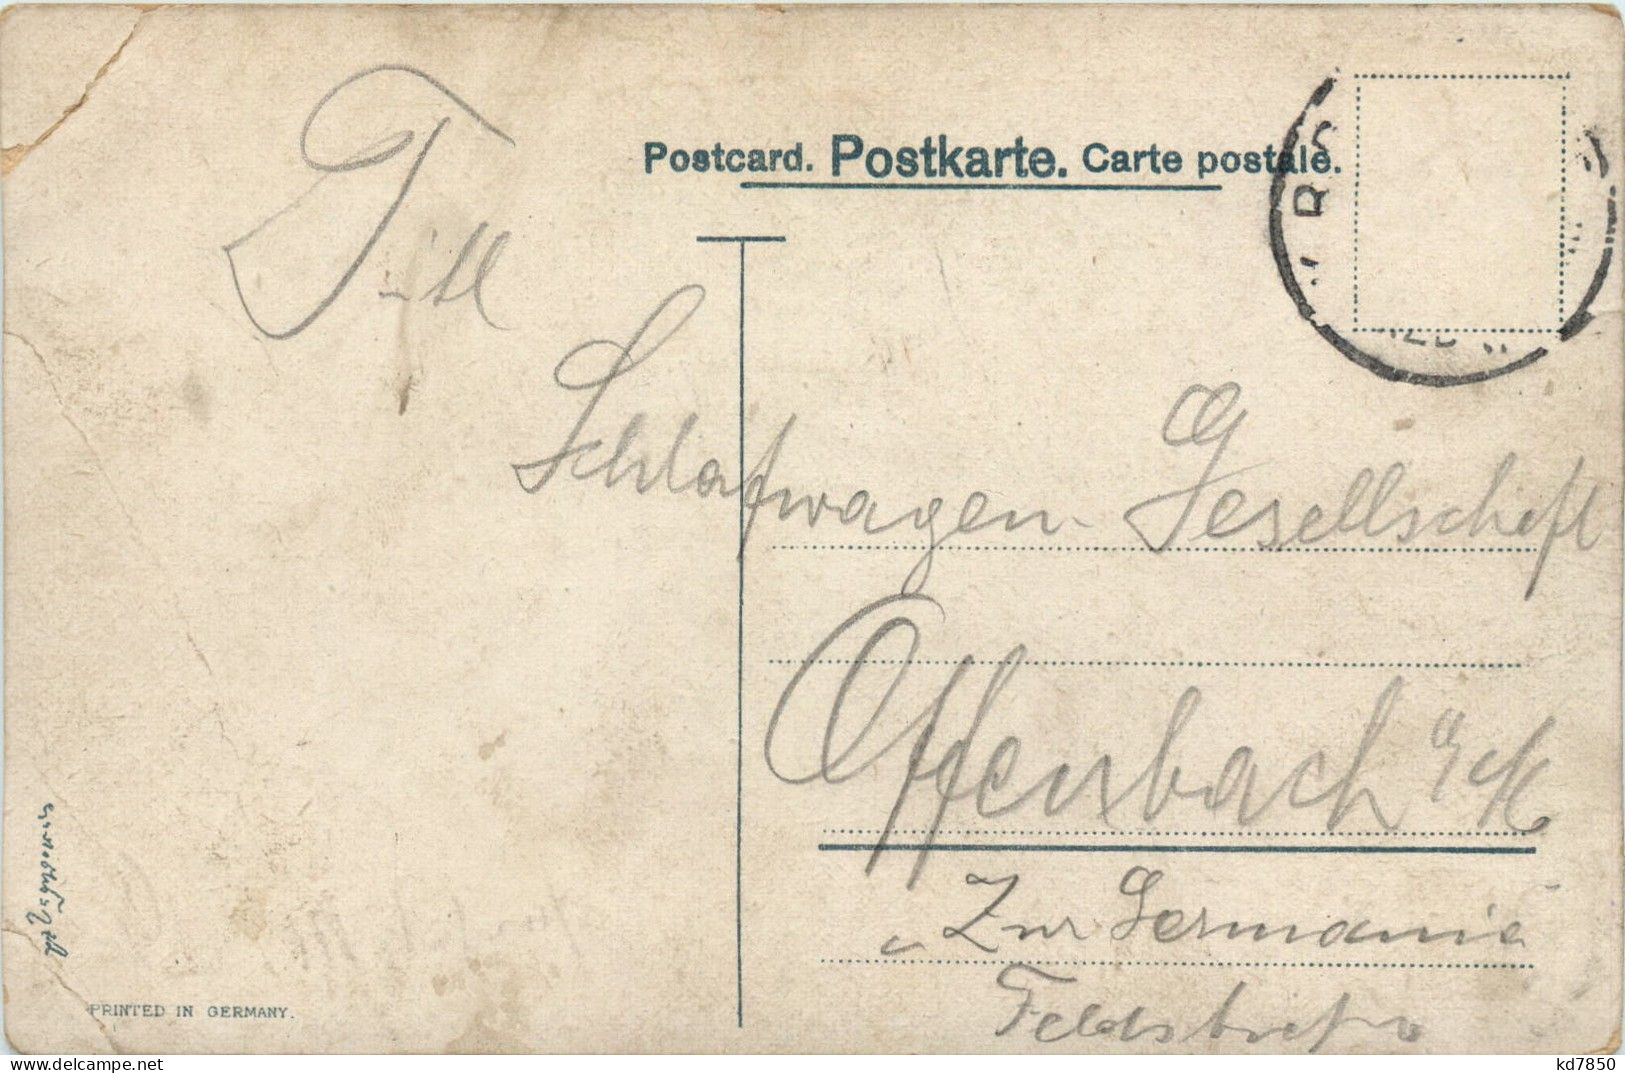 Postcard. Postkarte. Carte postale.
Titl
Schlafwagen-Gesellschaft
Offenbach a/M
"Zur Germania
Feldstraße
PRINTED IN GERMANY.
kd7850